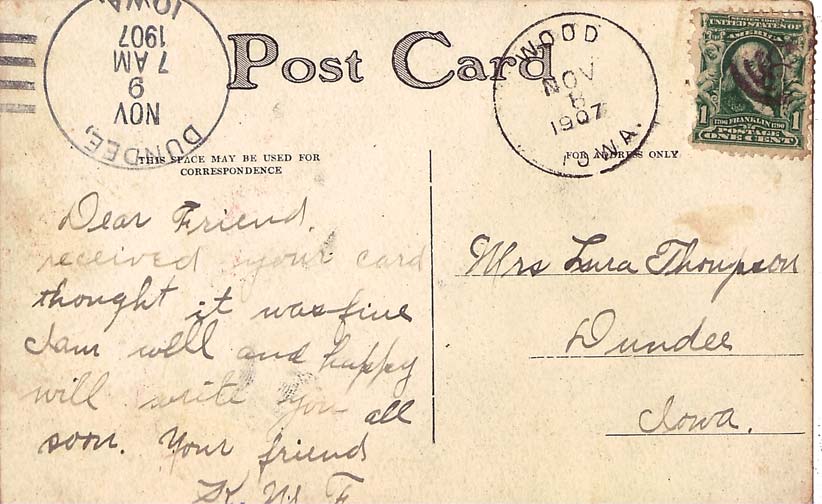 IOWA.
1907
7 AM
9
NOV
DUNDEE,
Post Card
WOOD
NOV
8
1907
IOWA.
SERIES 1902
UNITED STATES OF
AMERICA
1706 FRANKLIN 1790
1 POSTAGE 1
ONE CENT
THIS SPACE MAY BE USED FOR
CORRESPONDENCE
FOR ADDRESS ONLY
Dear Friend.
received your card
thought it was fine
I am well and happy
will write you all
soon. Your friend
Mrs Lura Thompson
Dundee
Iowa.